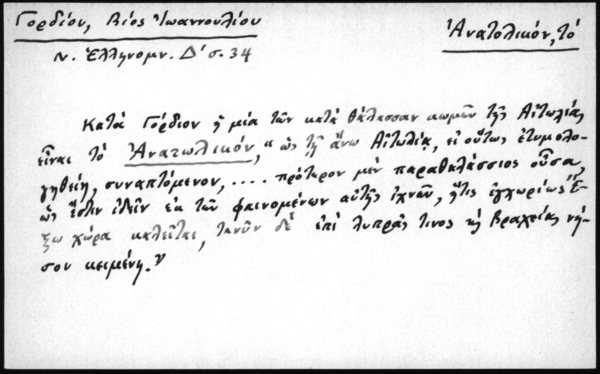 Γορδίου, Βίος Ἰωαννουλίου
Ἀνατολικόν, τό
Ν. Ἑλληνομν. Δ' σ. 34
Κατά Γόρδιον ἡ μία τῶν κατά θάλασσαν κωμῶν τῆς Αἰτωλίας
εἶναι τό Ἀνατωλικόν, "ὡς τῇ ἄνω Αἰτωλίᾳ, εἰ οὕτως ἐτυμολο-
γηθείη, συναπτόμενον, .... πρότερον μέν παραθαλάσσιος οὖσα,
ὡς ἔστιν ἰδεῖν ἐκ τῶν φαινομένων αὐτῆς ἰχνῶν, ἥτις ἐγχωρίως Ἔ-
ξω χώρα καλεῖται, τανῦν δέ ἐπί λυπρᾶς τινος κ̀ βραχείας νή-
σου κειμένη."